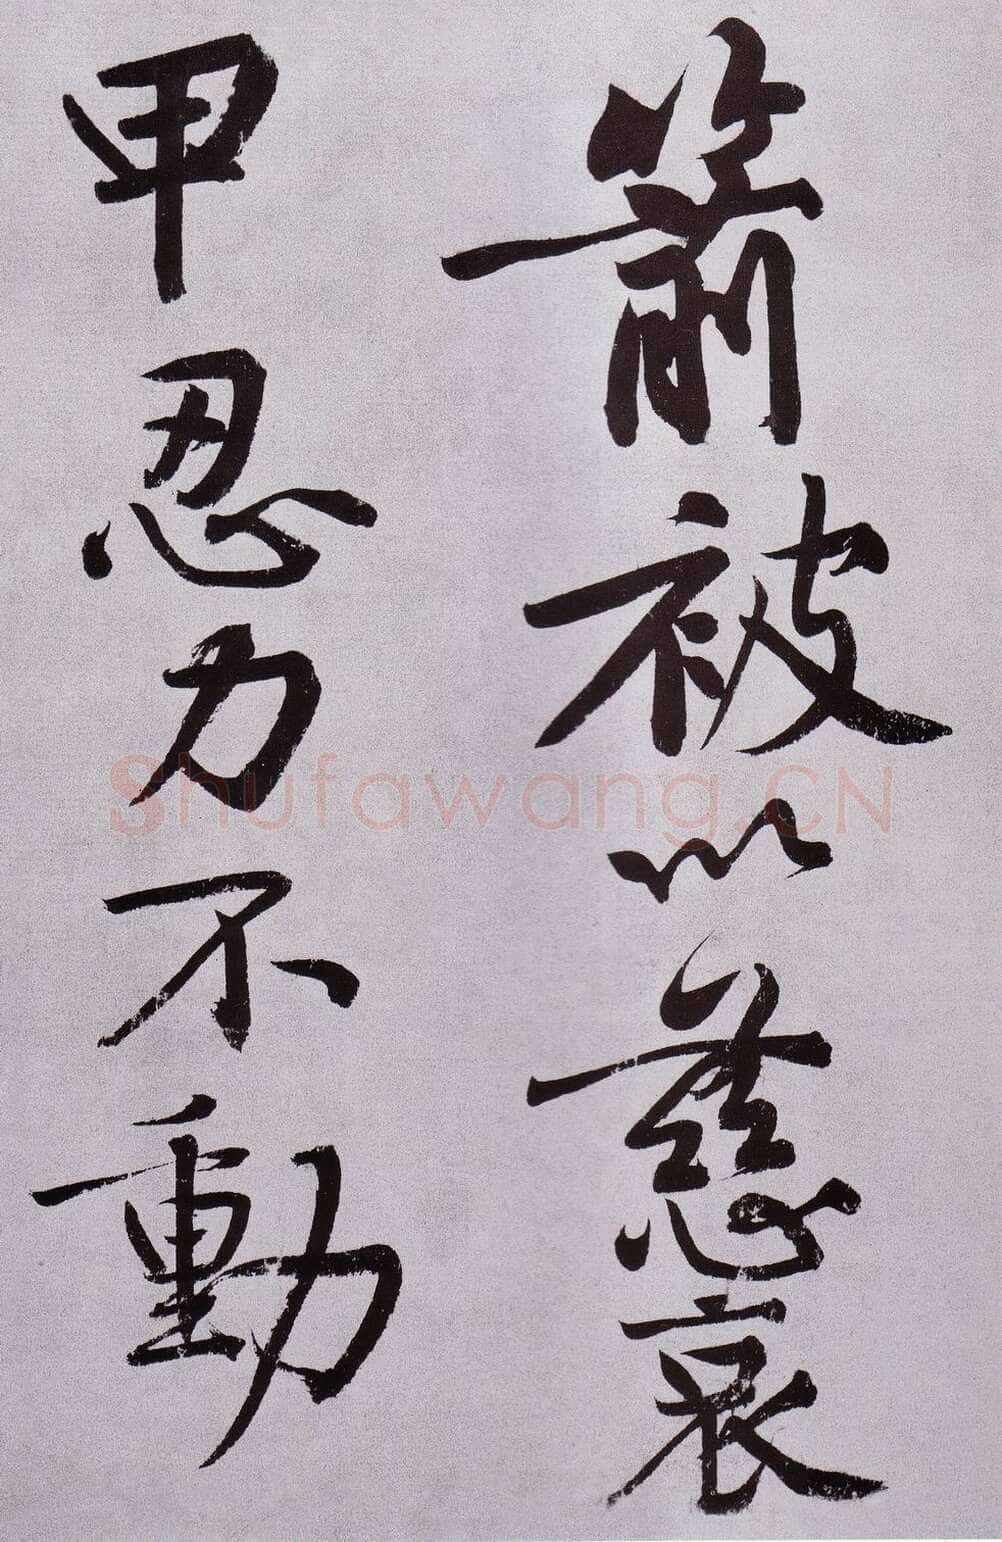 箭被以慈哀
甲忍力不動
Shufawang.CN